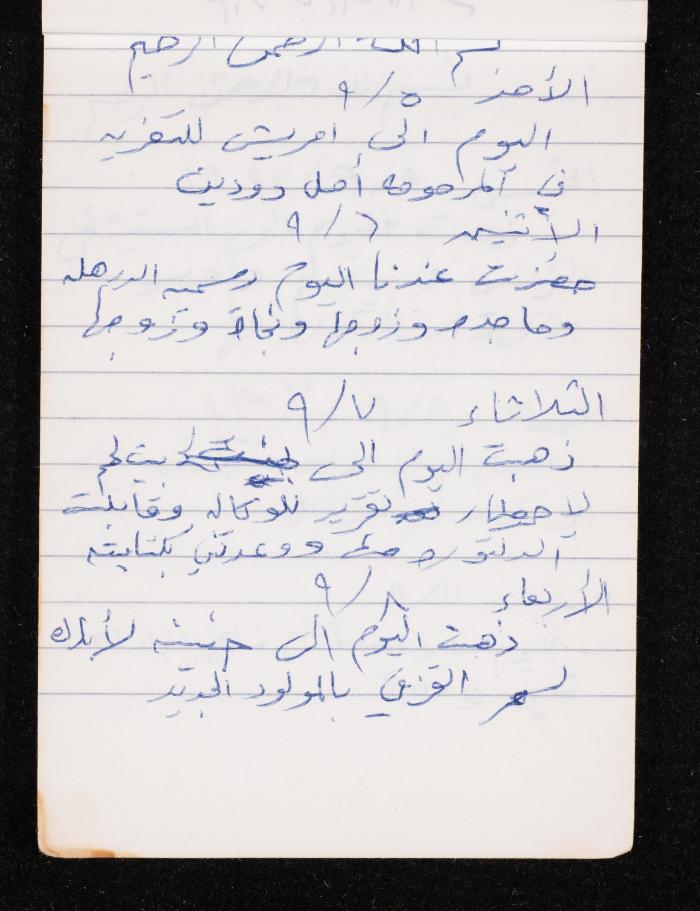 بسم الله الرحمن الرحيم
الأحد ٩/٥
اليوم الى امريش للتعزيه
في المرحومه أمل دودين
الأثنين ٩/٦
حضرت عندنا اليوم وسميه
وماجده وزوجها ونجاة وزوجها
الثلاثاء ٩/٧
ذهبت اليوم الى بيت لحم
لإحضار تقرير للوكاله وقابلت
الدكتوره ووعدتني بكتابته
الأربعاء ٩/٨
ذهبت اليوم الى لأبارك
القزقي بالمولود الجديد